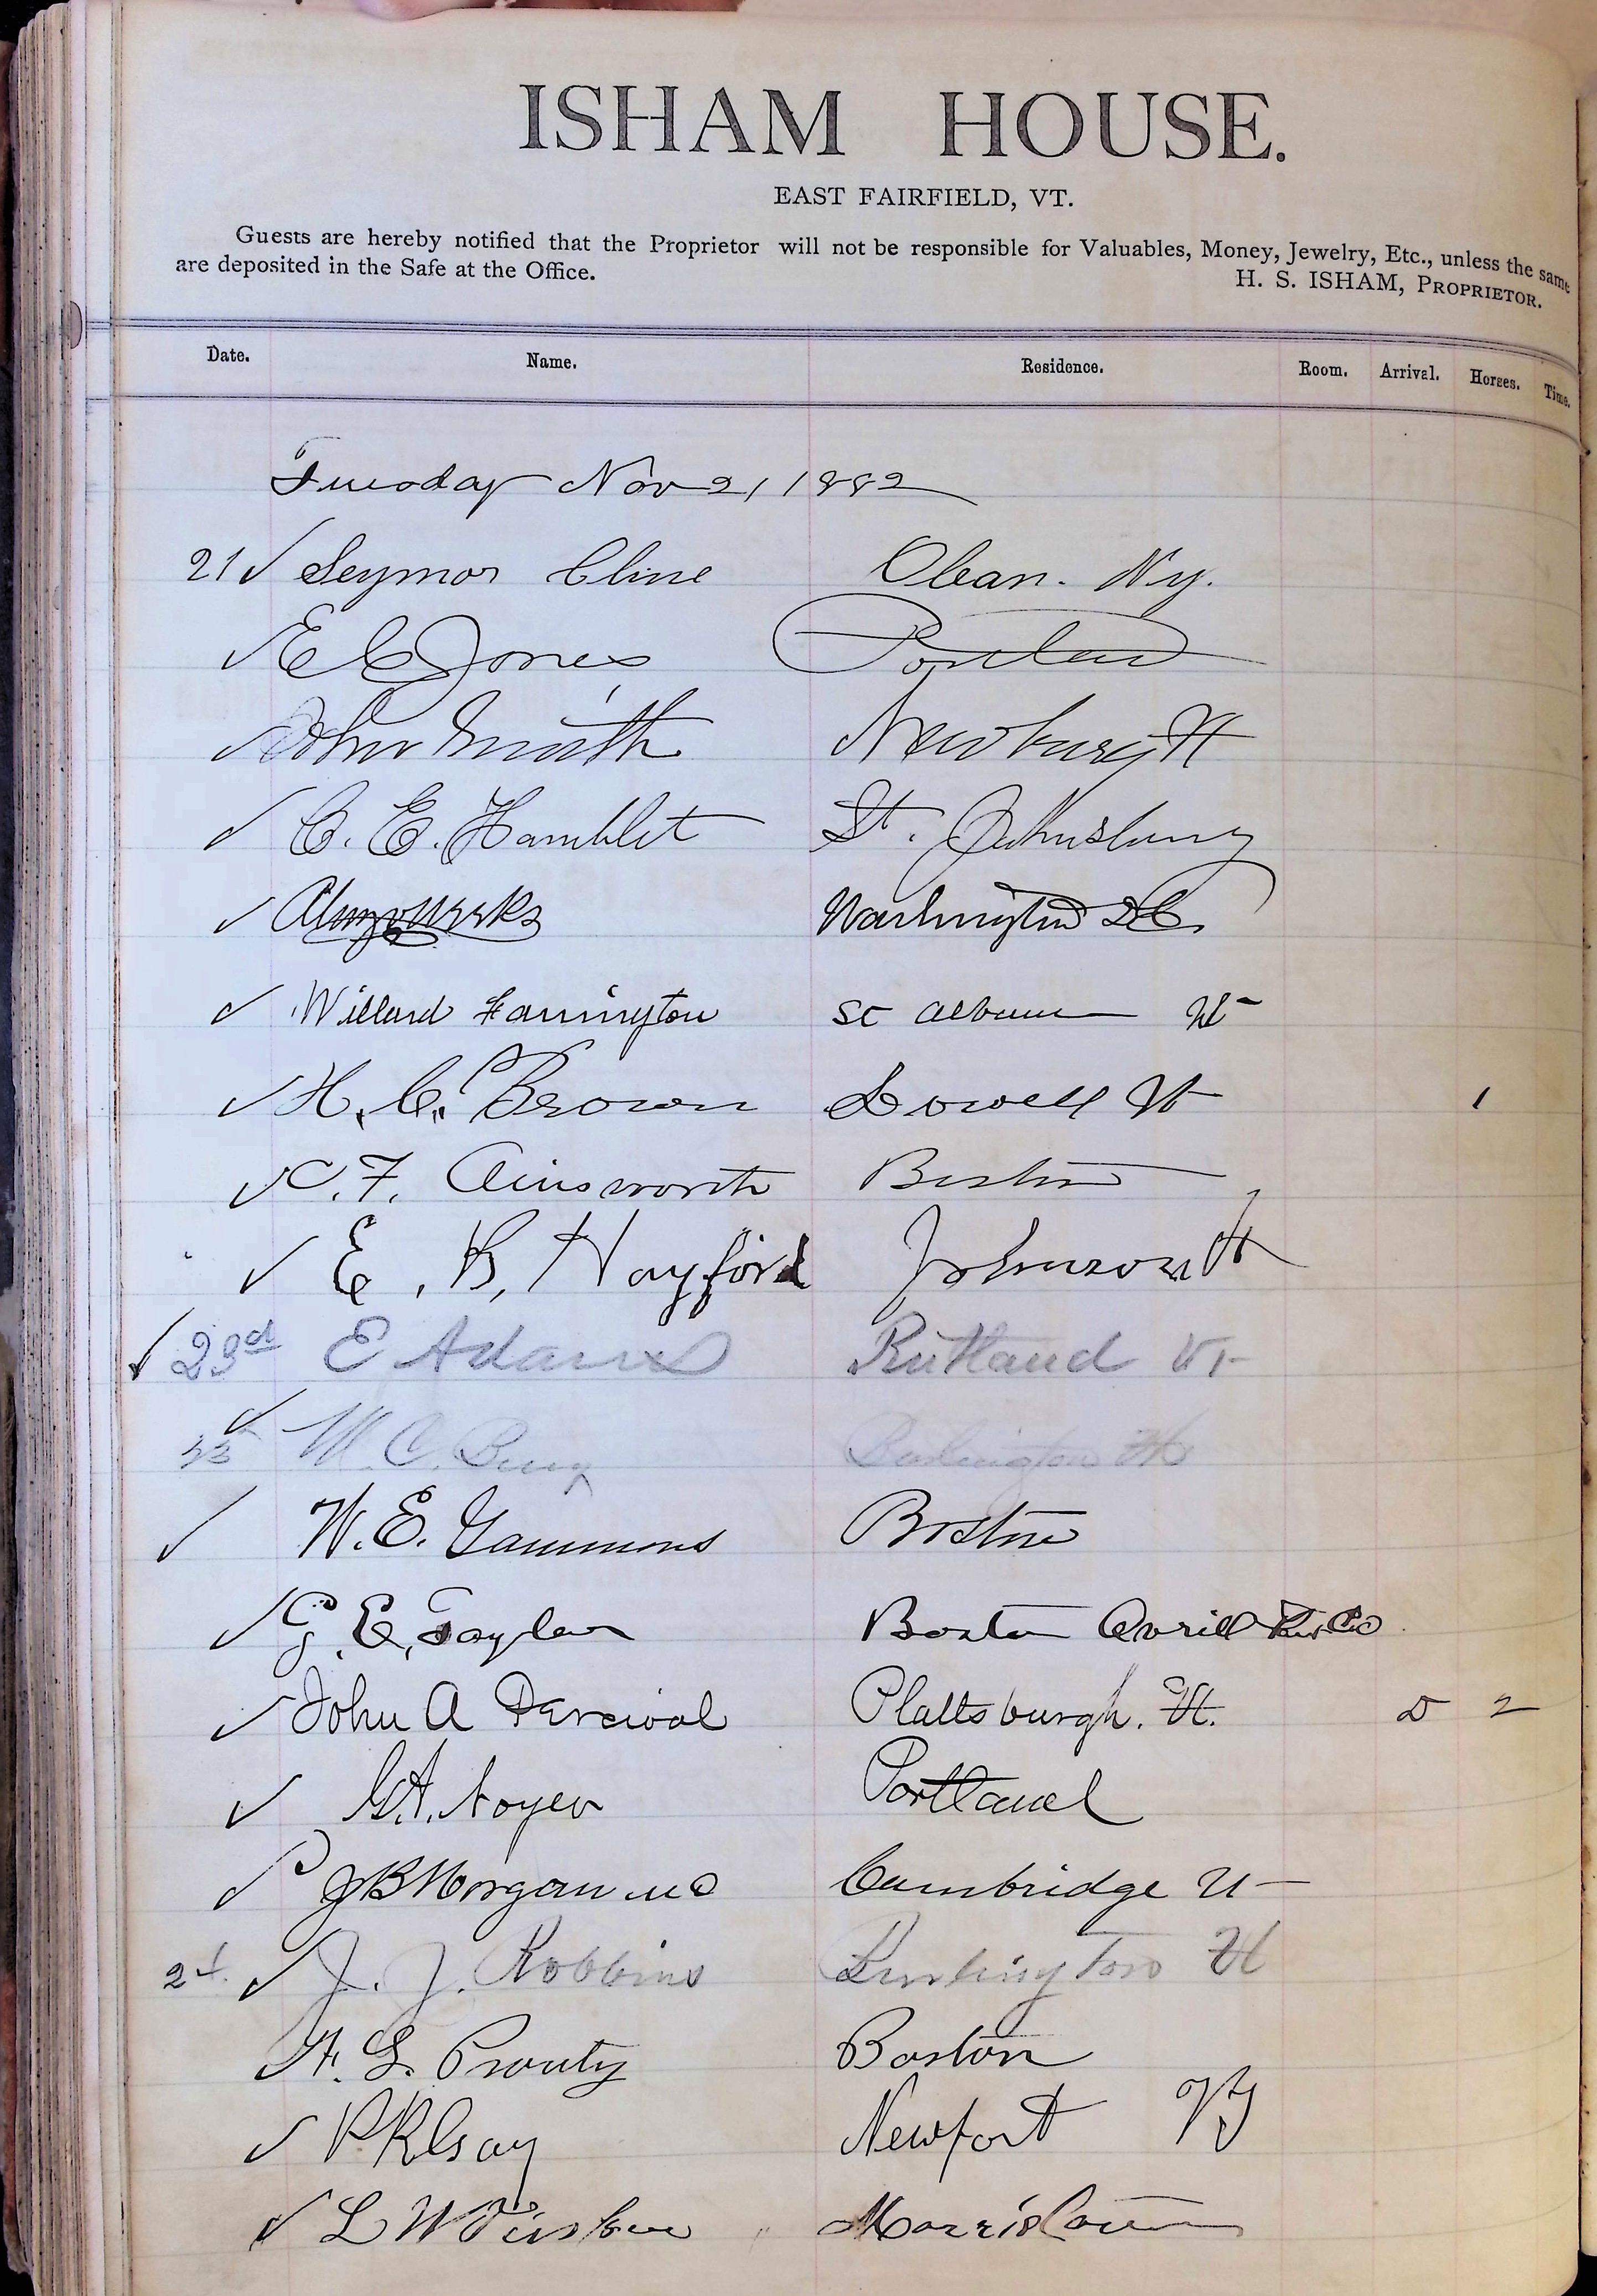 ISHAM HOUSE.
EAST FAIRFIELD, VT.
Guests are hereby notified that the Proprietor will not be responsible for Valuables, Money, Jewelry, Etc., unless the same
are deposited in the Safe at the Office.
H. S. ISHAM, PROPRIETOR.
Date. Name. Residence. Room. Arrival. Horses. Time.
Tuesday Nov 21 1882
21 ✓ Seymor Cline Olean. N.y.
✓ E C Jones Portland
✓ John Smith Newbury Vt
✓ C. E. Hamblet St. Johnsbury
✓ Weeks Washington DC.
✓ Willard Farrington St Albans Vt
✓ H. C. Brown Lowell Vt 1
✓ C. F. Ainsworth Boston
✓ E. B. Hayford Johnson Vt
✓ 23d E Adams Rutland Vt
✓ 23 M. C. Berry Burlington Vt
✓ W. E. Gammons Boston
✓ G. E. Taylor Boston Averill Co
✓ John A Percival Plattsburgh. Vt. D 2
✓ G.A. Noyes Portland
✓ J B Morgan MD Cambridge Vt
24. ✓ J. J. Robbins Burlington Vt
✓ H. L. Prouty Boston
✓ Newport Vt
✓ L W Morristown